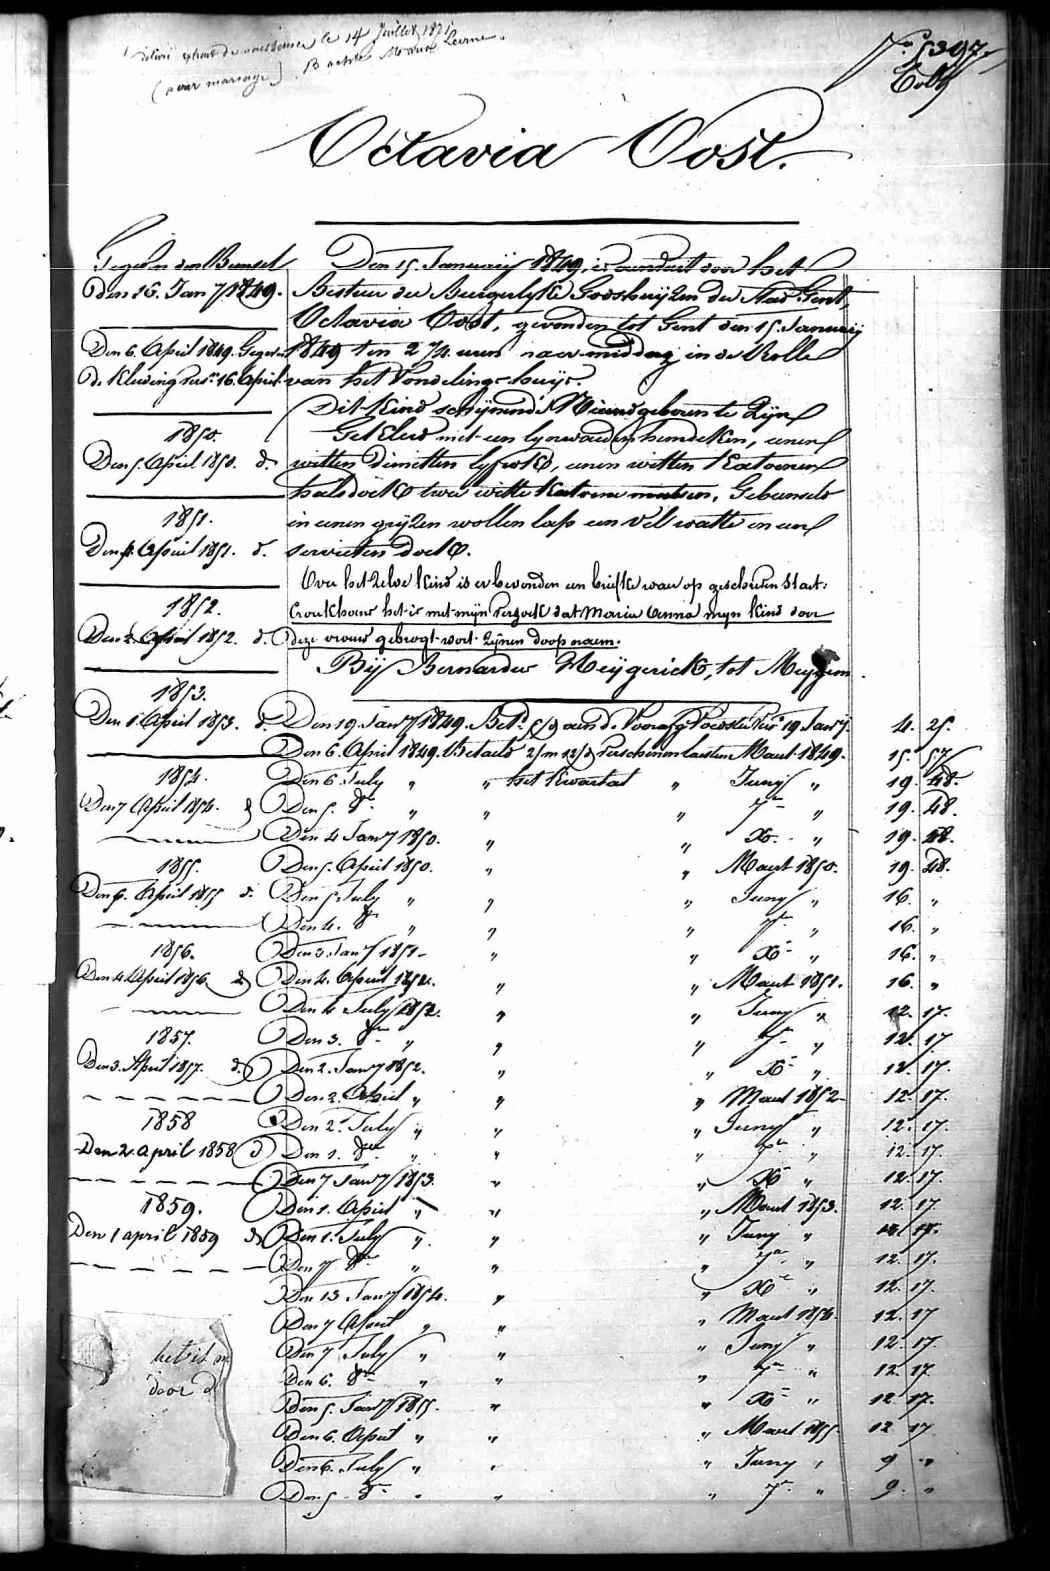 délivré extrait de naissance le 14 Juillet 1871
(pour mariage)
No 5397.
Octavia Oost.
Gegeven den Bunsel
den 16. Jany 1849.
Den 6. April 1849. Gegeven
de Kleeding 16. April
1850.
Den 5. April 1850. do
1851.
Den 4. April 1851. do
1852.
Den 2. April 1852. do
1853.
Den 1. April 1853. do
1854.
Den 7 April 1854. do
1855.
Den 6. April 1855 do
1856.
Den 4 April 1856 do
1857.
Den 3. April 1857. do
1858
Den 2 april 1858 do
1859.
Den 1 april 1859 do
Den 15. Januarij 1849, is aenvaert door het
Bestuer der Burgerlyke Godshuijzen der Stad Gent,
Octavia Oost, gevonden tot Gent den 15. Januarij
1849 ten 2 1/4 uren naer middag in de Rolle
van het Vondelings-huijs.
Dit Kind schijnende Nieuwsgeboren te Zijn
Gekleed met een lynwaeden hemdeken, eenen
witten dimitten lyfrok, eenen witten Katoenen
halsdoek twee witte Katoene mutsen, Gebunseld
in eenen grijzen wollen lap een vel watte en een
servietten doek.
Over het zelve Kind is er bevonden een briefke waer op geschreven staet:
het is met mijn versoek dat Maria Anna mijn kind door
deze vrouw gebrogt wort zijnen doop naem.
Bij Bernardus Heijgerick, tot Meijgem
Den 19. Jany 1849. Betd aen de 19 Jany. 4. 25.
Den 6. April 1849. Betaeld 2/m 12/d verschenen laesten Maert 1849. 15. 57
Den 6. July " " het Kwartael " Juny " 19. 48.
Den 5. 8re " " " 7re " 19. 48.
Den 4 Jany 1850. " " Xre " 19. 48.
Den 5. April 1850. " " Maert 1850. 19. 48.
Den 5 July " " " Juny " 16. "
Den 4. 8re " " " 7re " 16. "
Den 3. Jany 1851 " " Xre " 16. "
Den 4. April 1851. " " Maert 1851. 16. "
Den 4 July 1851. " " Juny " 12. 17.
Den 3. 8re " " " 7re " 12. 17.
Den 2. Jany 1852. " " Xre " 12. 17.
Den 2. April " " " Maert 1852 12. 17.
Den 2. July " " " Juny " 12. 17.
Den 1. 8re " " " 7re " 12. 17.
Den 7 Jany 1853. " " Xre " 12. 17.
Den 1. April " " " Maert 1853. 12. 17
Den 1. July " " " Juny " 12. 17.
Den 7 8re " " " 7re " 12. 17.
Den 13 Jany 1854. " " Xre " 12. 17.
Den 7 April " " " Maert 1854. 12. 17
Den 7 July " " " Juny " 12. 17.
Den 6. 8re " " " 7re " 12. 17
Den 5. Jany 1855. " " Xre " 12. 17.
Den 6. April " " " Maert 1855 12 17
Den 6. July " " " Juny " 9 "
Den 5 8re " " " 7re " 9. "
het is m
door d